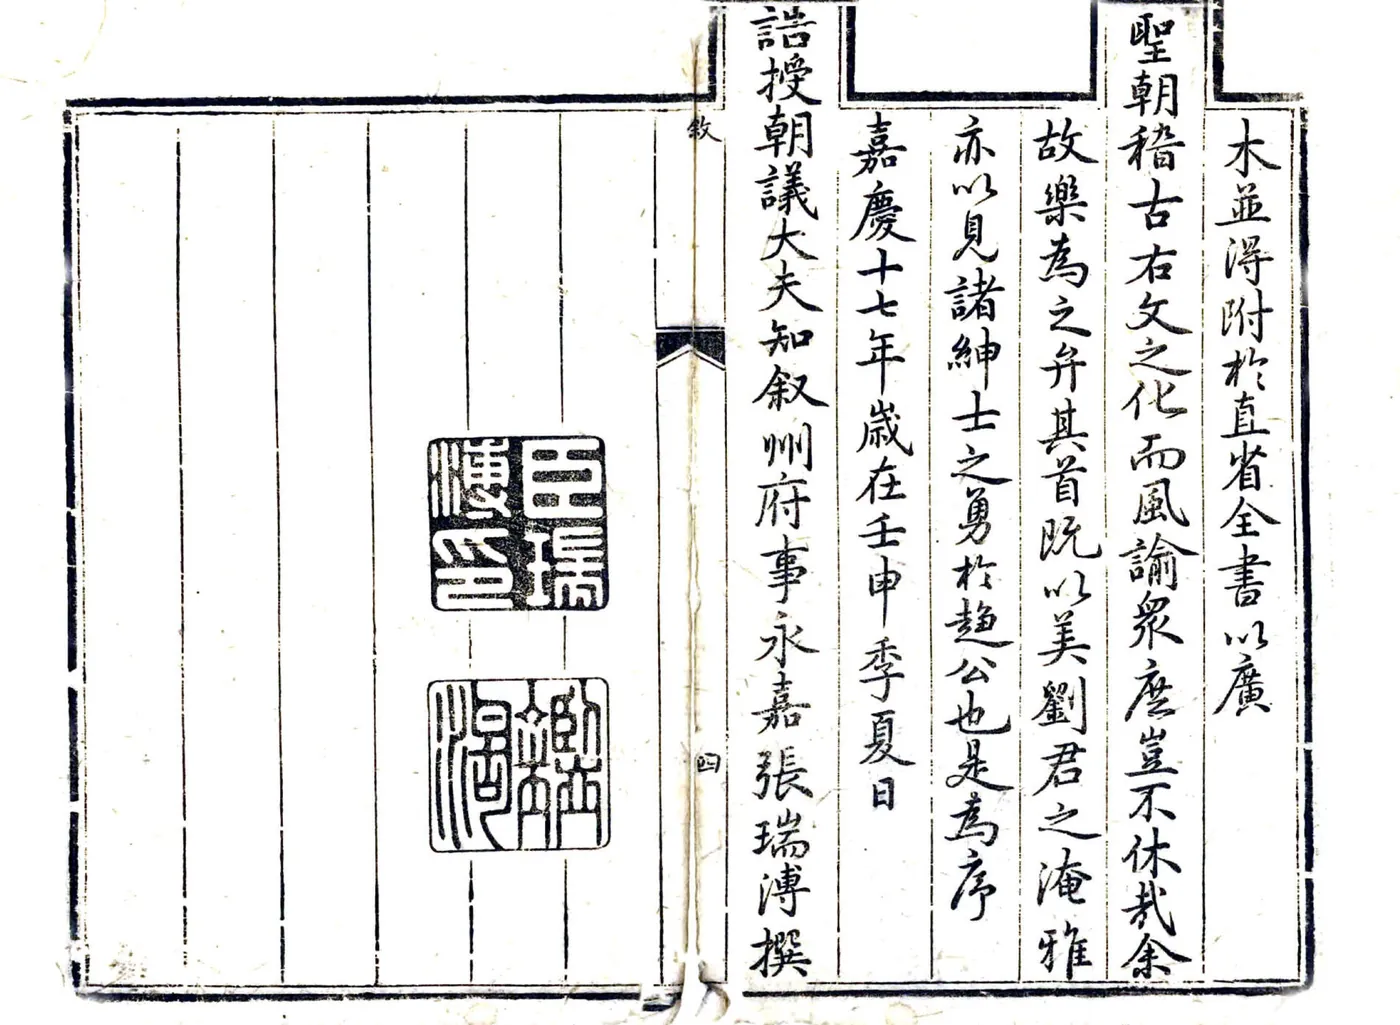 木並得附於直省全書以廣
聖朝稽古右文之化而風諭眾庶豈不休哉余
故樂為之弁其首既以美劉君之淹雅
亦以見諸紳士之勇於趨公也是為序
嘉慶十七年歲在壬申季夏日
誥授朝議大夫知叙州府事永嘉張瑞溥撰
敘
四
臣瑞
溥印